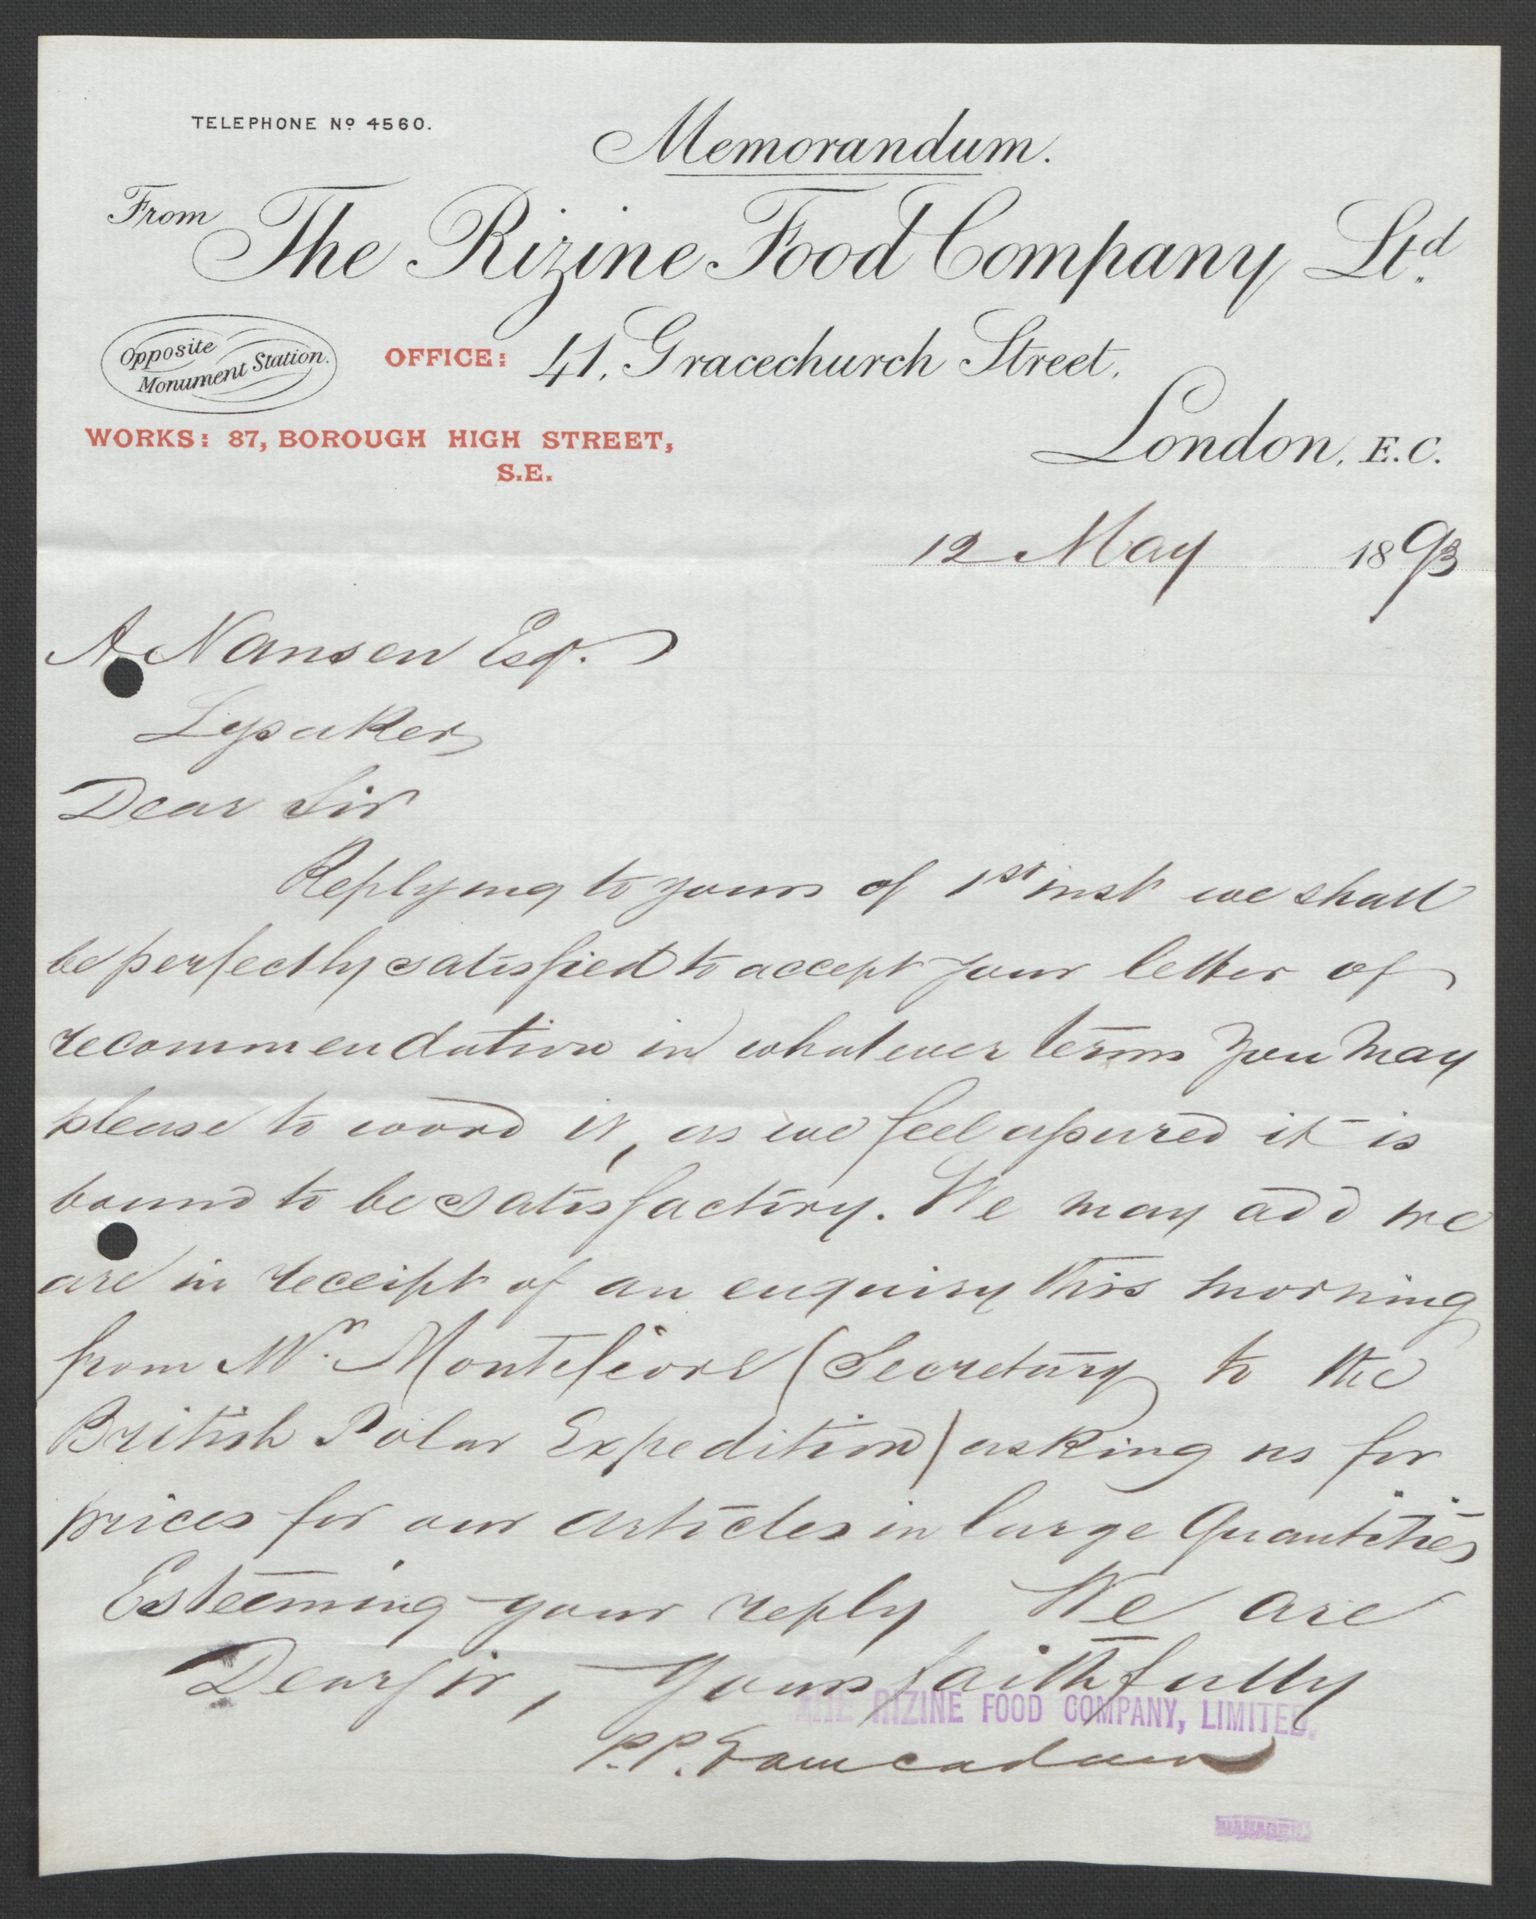 TELEPHONE Nº 4560.
Memorandum.
From The Rizine Food Company Ltd.
Opposite
Monument Station.
OFFICE: 41, Gracechurch Street,
WORKS: 87, BOROUGH HIGH STREET,
S.E.
London, E.C.
12 May 1893
A Nansen Esq.
Lysaker
Dear Sir
Replying to yours of 1st inst we shall
be perfectly satisfied to accept your letter of
recommendation in whatever terms you may
please to word it, as we feel assured it is
bound to be satisfactory. We may add we
are in receipt of an enquiry this morning
from Mr. Montefiore (Secretary to the
British Polar Expedition) asking us for
prices for our articles in large quantities
Esteeming your reply We are
Dear Sir, Yours faithfully
THE RIZINE FOOD COMPANY, LIMITED.
P.P.
MANAGER.